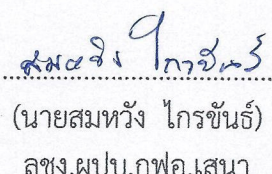 สมหวัง ไกรขันธ์
(นายสมหวัง ไกรขันธ์)
ลชง.ผปบ.กฟอ.เสนา